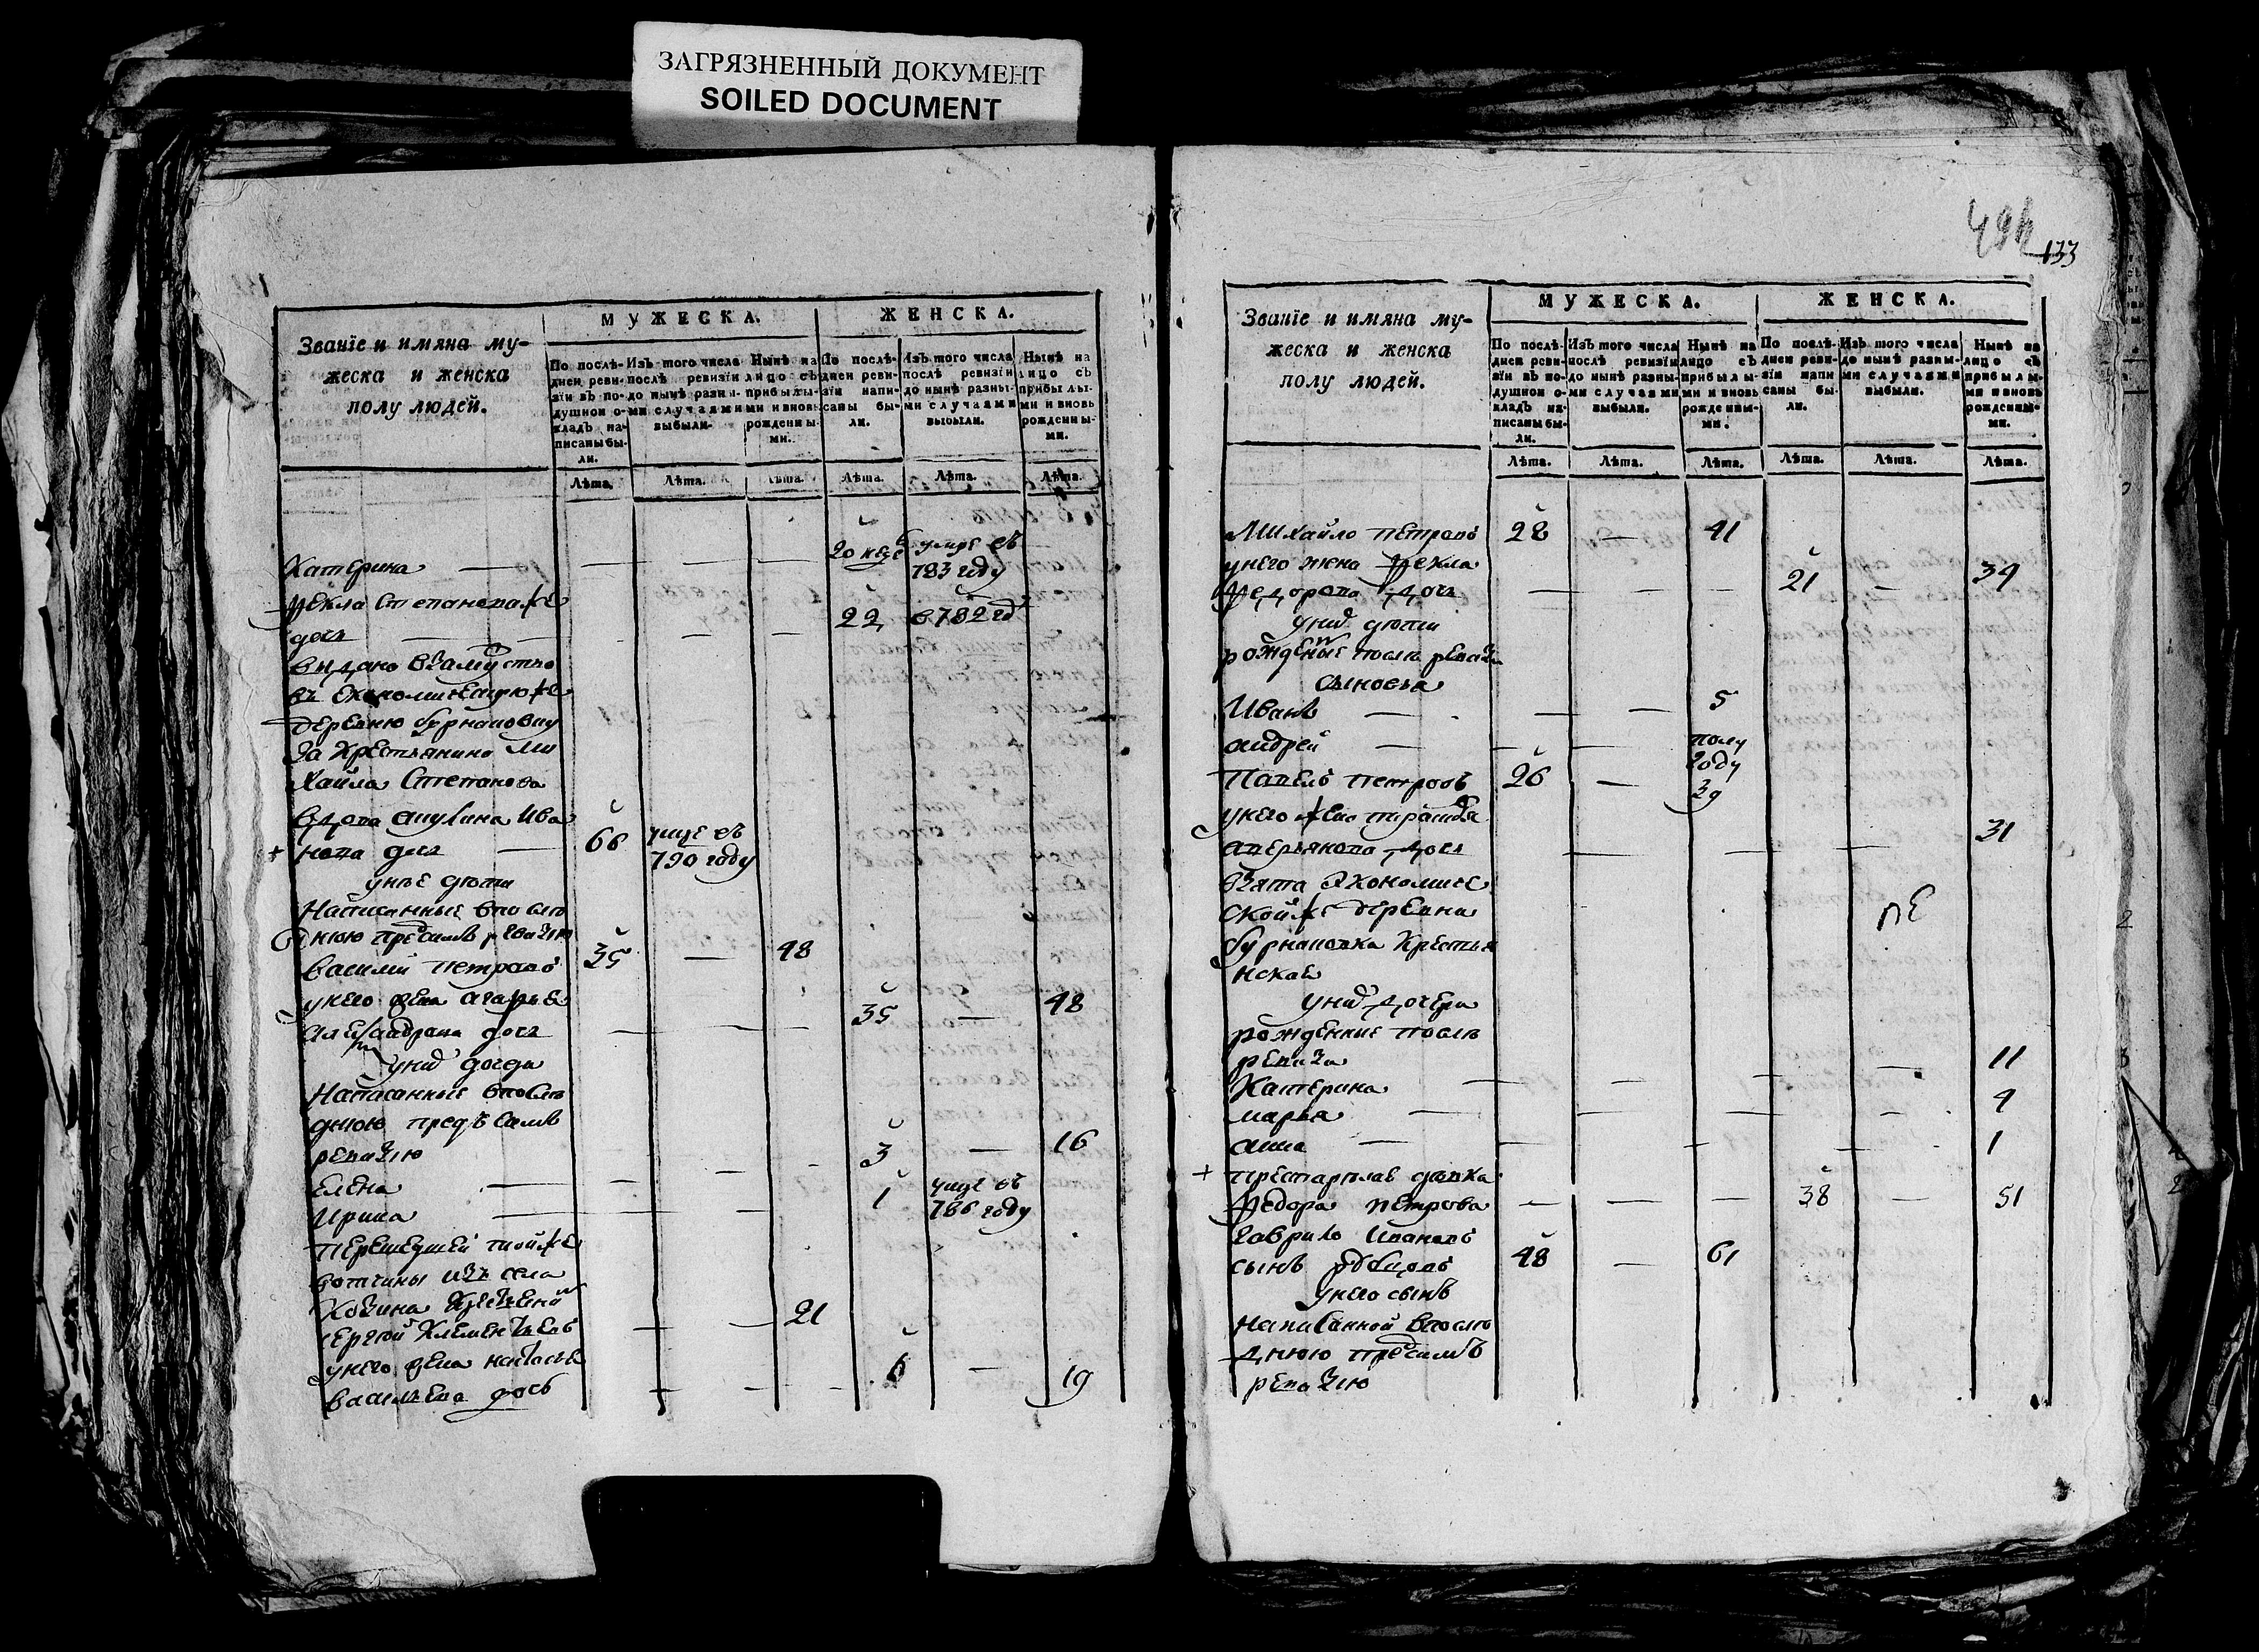 ЗАГРЯЗНЕННЫЙ ДОКУМЕНТ
SOILED DOCUMENT
Званїе и имяна му-
жеска и женска
полу людей.
МУЖЕСКА.
ЖЕНСКА.
По послѣ-
дней реви-
зїи въ по-
душной о-
кладъ на-
писаны бы-
ли.
Изъ того числа
послѣ ревизїи
до нынѣ разны-
ми случаями
выбыли.
Нынѣ на
лицо съ
прибылы-
ми и вновь
рожденны-
ми.
По послѣ-
дней реви-
зїи напи-
саны бы-
ли.
Изъ того числа
послѣ ревизїи
до нынѣ разны-
ми случаями
выбыли.
Нынѣ на
лицо съ
прибылы-
ми и вновь
рожденны-
ми.
Лѣта. Лѣта. Лѣта. Лѣта. Лѣта. Лѣта.
Катерина — 20 неде умре въ 783 году
Фекла Степанова же
дочь — 22 в 782 год
выдано взамуство
въ Економическую же
деревню Бурнаковку
за крестьянина Ми
хайла Степанова
вдова Акулина Ива
+ нова дочь — 66 умре въ 790 году
у нее дети
Написанные впосле
днюю пред симъ ревизию
Василий Петровъ 35 — 48
у него жена Агафья
Александрова дочь 35 — 48
у них дочери
Написанные впосле
днюю предъ симъ
ревизию
Елена — 3 — 16
Ирина — 1 умре въ 786 году
Перешедшей той же
вотчины изъ села
Козина
Сергей Клементьевъ 21
у него жена Настасья
Васильева дочь 6 — 19
494
133
Званїе и имяна му-
жеска и женска
полу людей.
МУЖЕСКА.
ЖЕНСКА.
По послѣ-
дней реви-
зїи въ по-
душной о-
кладъ на-
писаны бы-
ли.
Изъ того числа
послѣ ревизїи
до нынѣ разны-
ми случаями
выбыли.
Нынѣ на
лицо съ
прибылы-
ми и вновь
рожденны-
ми.
По послѣ-
дней реви-
зїи напи
саны бы-
ли.
Изъ того числа
до нынѣ разны-
ми случаями
выбыли.
Нынѣ на
лицо съ
прибылы-
ми и вновь
рожденны-
ми.
Лѣта. Лѣта. Лѣта. Лѣта. Лѣта. Лѣта.
Михайло Петровъ 28 — 41
у него жена Фекла
Федорова дочь 21 — 34
у них дети
рожденые после ревизи
сыновья
Иванъ — 5
Андрей — полу году
Павелъ Петровъ 26 — 39
у него жена
Аверьянова дочь 31
взята Экономиче
ской же деревни
Бурнаковка крестья
нская
у них дочери
рожденные после
ревизи
Катерина — 11
Марья — 4
Анна — 1
+ Престарелая девка
Федора Петрова — 38 — 51
Гаврило Ивановъ
сынъ 48 — 61
у него сынъ
написанной впосле
днюю пред симъ
ревизию